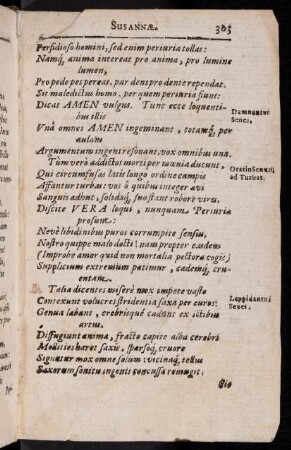 SUSANNÆ.
303
Perfidioso homini, sed enim periuria tollas:
Namq́, anima intereat pro anima, pro lumine
lumen,
Pro pede pes pereat, par dens pro dente rependat.
Sit maledictus homo, per quem periuria fiunt:
Dicat AMEN vulgus. Tunc ecce loquenti-
bus illis
Vnâ omnes AMEN ingeminant, totamq́, per
aulam
Argumentum ingens resonant, vox omnibus una.
Tum verò addictos morti per mœnia ducunt,
Qui circumfusa latis longo ordine campis
Affantur turba: vos ô quibus integer ævi
Sanguis adhuc, solidæq́, suo stant robore vires,
Discite VERA loqui, nunquam Periuria
prosunt:
Nevè libidinibus puros corrumpite sensus,
Nostro quippe malo docti: nam propter eadem
(Improbe amor quid non mortalia pectora cogis)
Supplicium extremum patimur, cædemq́, cru-
entam.
Talia dicentes miserè mox impete vasto
Contexunt volucres stridentia saxa per auras:
Genua labant, crebrisque cadunt ex ictibus
artus.
Diffugiunt anima, fracto capite alba cerebri
Mollities hæret saxis, sparsoq́, cruore
Signatur mox omne solum: vicinaq́, tellus
Saxorum sonitu ingenti concussa remugit.
Sic
Damnantur
Senes.
Oratio Senum
ad Turbas.
Lapidantur
Senes.